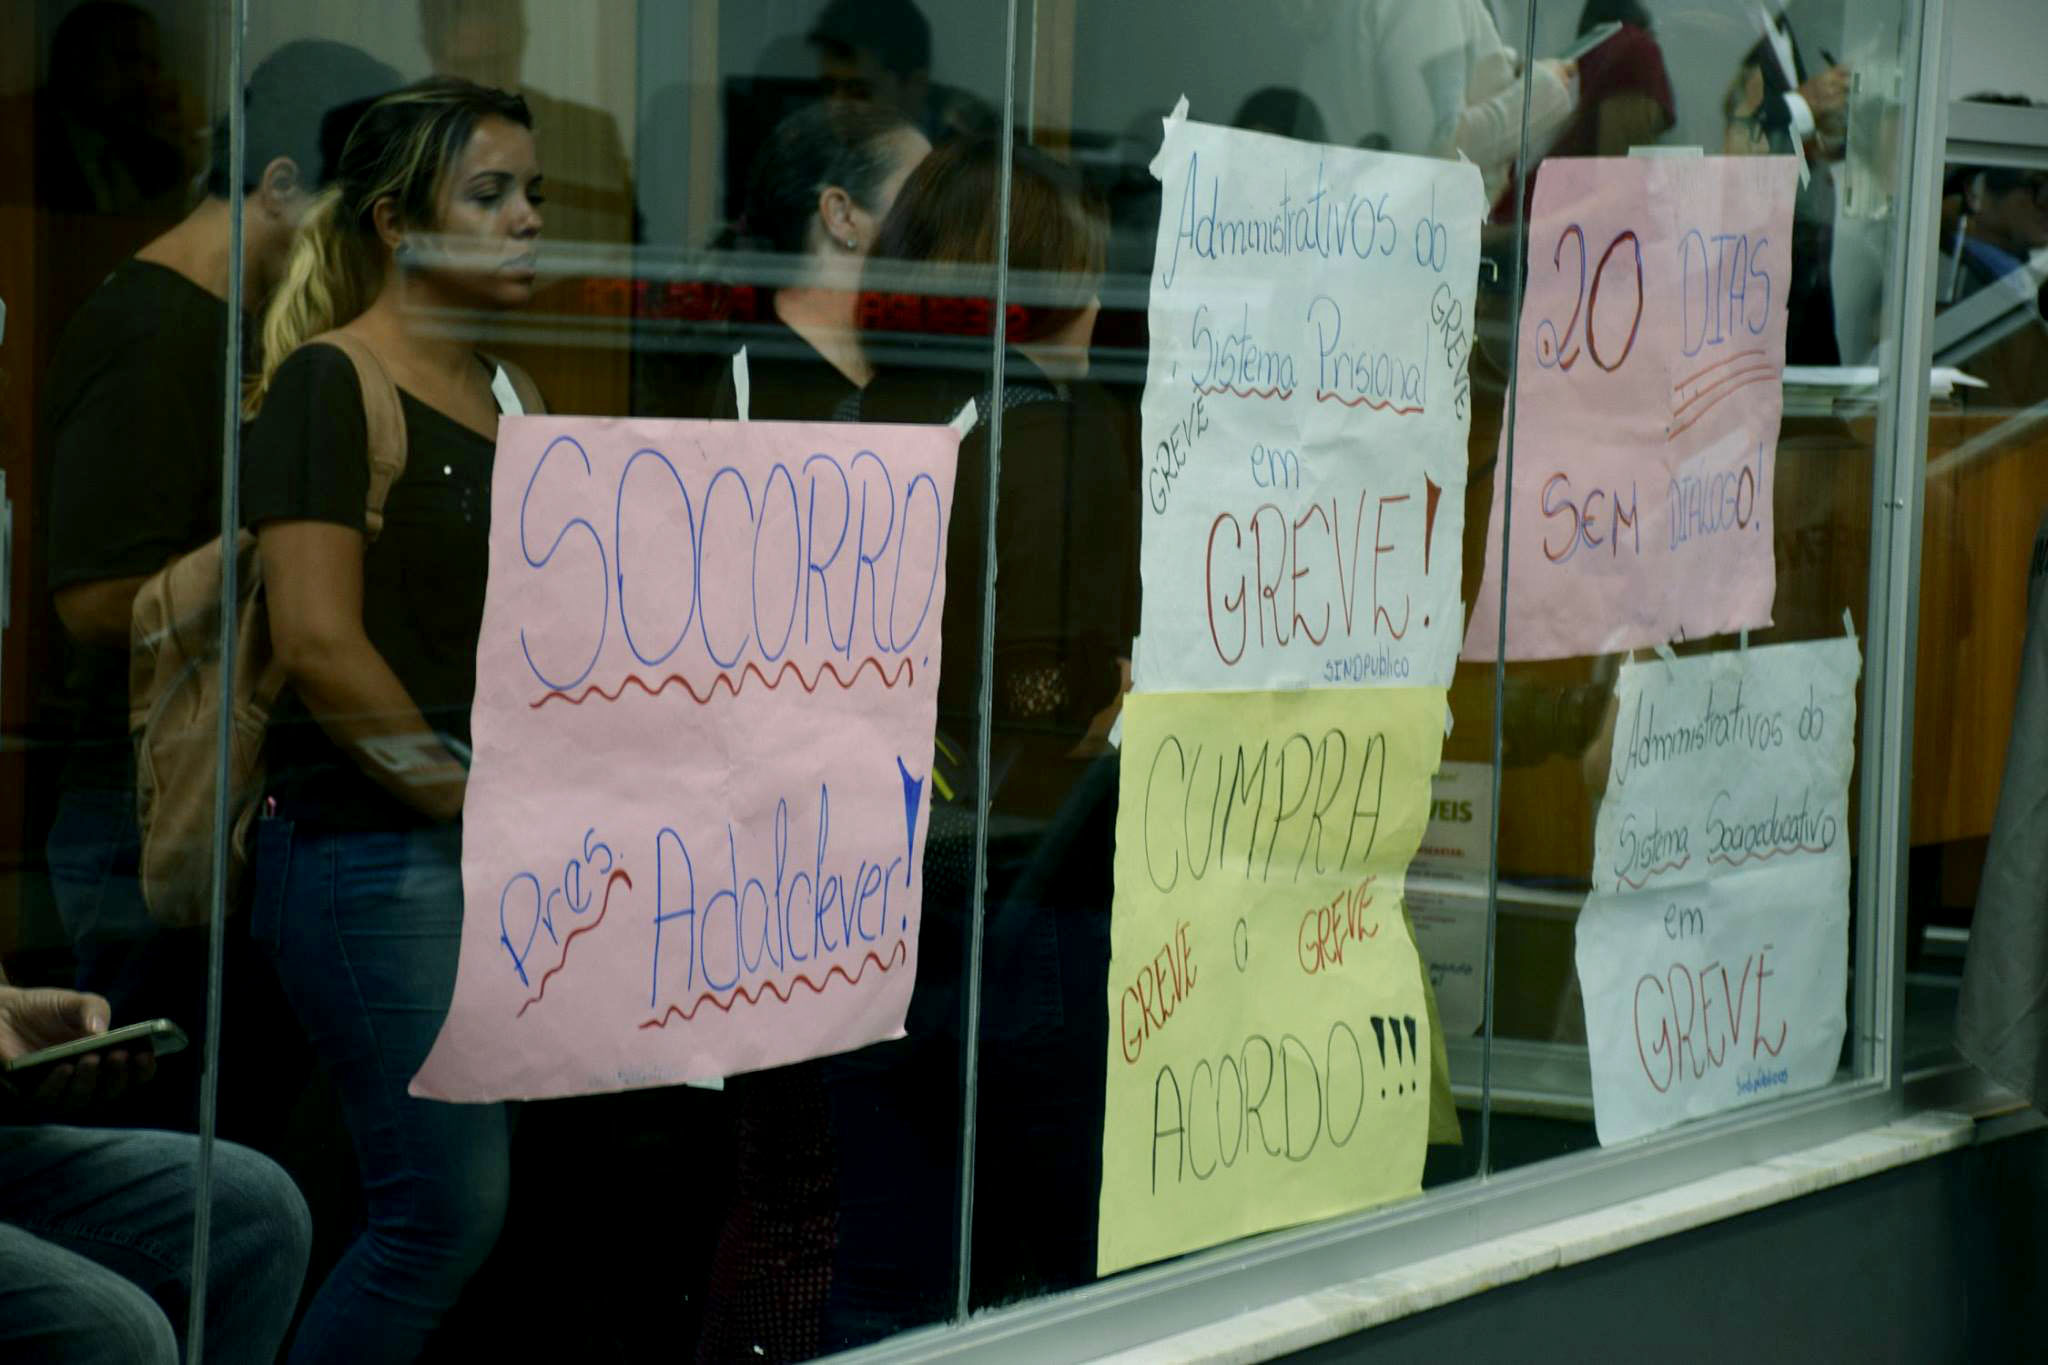 SOCORRO.
Pres. Adalclever!
Administrativos do
Sistema Prisional
em
GREVE!
SINDPúblico
GREVE
GREVE
CUMPRA
GREVE o GREVE
ACORDO!!!
20 DIAS
SEM DIÁLOGO!
Administrativos do
Sistema Socioeducativo
em
GREVE
VEIS